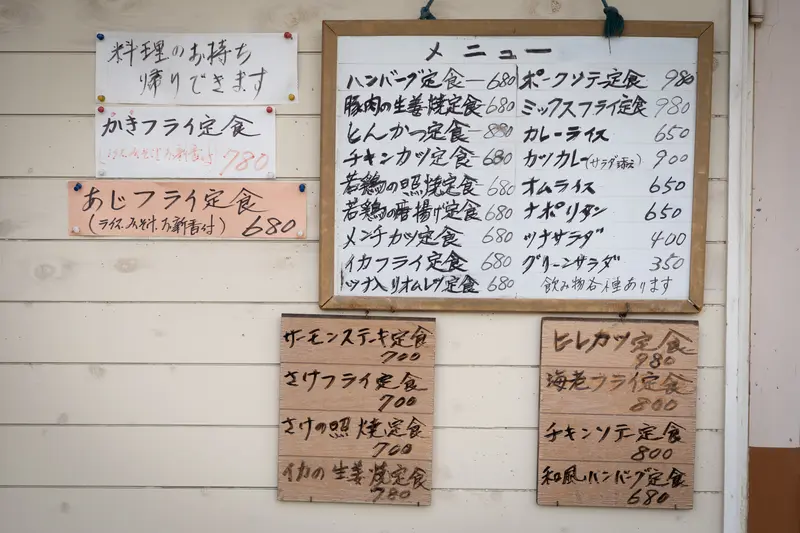 料理のお持ち
帰りできます
かきフライ定食
780
あじフライ定食
(ライス、みそ汁、お新香付) 680
メニュー
ハンバーグ定食 680
豚肉の生姜焼定食 680
とんかつ定食
チキンカツ定食 680
若鶏の照焼定食 680
若鶏の唐揚げ定食 680
メンチカツ定食 680
イカフライ定食 680
ツナ入りオムレツ定食 680
ポークソテー定食 980
ミックスフライ定食 980
カレーライス 650
カツカレー(サラダ添え) 900
オムライス 650
ナポリタン 650
ツナサラダ 400
グリーンサラダ 350
飲み物各種あります
サーモンステーキ定食
700
さけフライ定食
700
さけの照焼定食
700
イカの生姜焼定食
780
ヒレカツ定食
980
海老フライ定食
800
チキンソテー定食
800
和風ハンバーグ定食
680